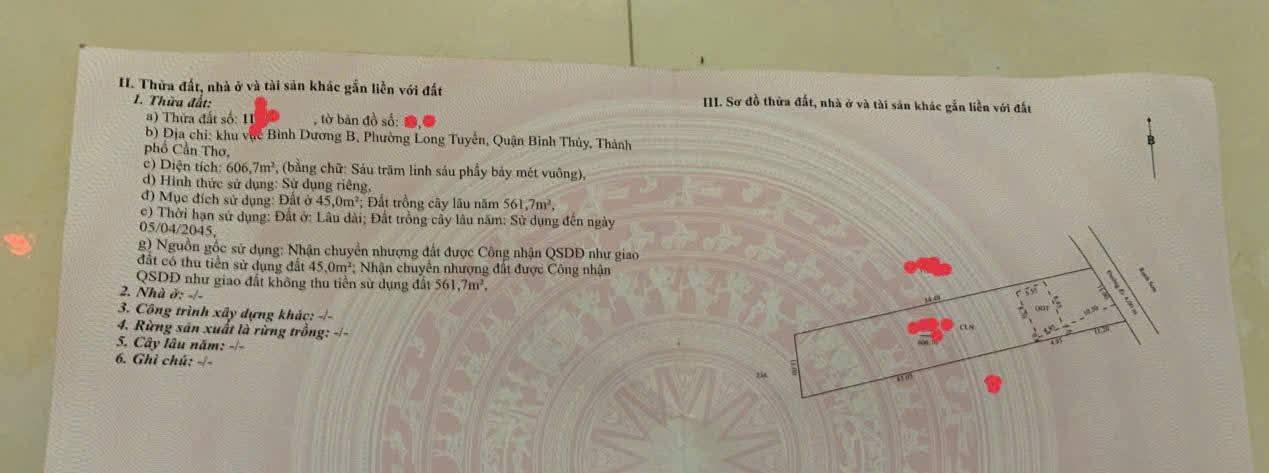 II. Thửa đất, nhà ở và tài sản khác gắn liền với đất
1. Thửa đất:
a) Thửa đất số: 11 , tờ bản đồ số: ,
b) Địa chỉ: khu vực Bình Dương B, Phường Long Tuyền, Quận Bình Thủy, Thành
phố Cần Thơ,
c) Diện tích: 606,7m², (bằng chữ: Sáu trăm linh sáu phẩy bảy mét vuông),
d) Hình thức sử dụng: Sử dụng riêng,
đ) Mục đích sử dụng: Đất ở 45,0m²; Đất trồng cây lâu năm 561,7m²,
e) Thời hạn sử dụng: Đất ở: Lâu dài; Đất trồng cây lâu năm: Sử dụng đến ngày
05/04/2045,
g) Nguồn gốc sử dụng: Nhận chuyển nhượng đất được Công nhận QSDĐ như giao
đất có thu tiền sử dụng đất 45,0m²; Nhận chuyển nhượng đất được Công nhận
QSDĐ như giao đất không thu tiền sử dụng đất 561,7m².
2. Nhà ở: -/-
3. Công trình xây dựng khác: -/-
4. Rừng sản xuất là rừng trồng: -/-
5. Cây lâu năm: -/-
6. Ghi chú: -/-
III. Sơ đồ thửa đất, nhà ở và tài sản khác gắn liền với đất
B
CLN
ODT
43.05
11.20
10.50
4.95